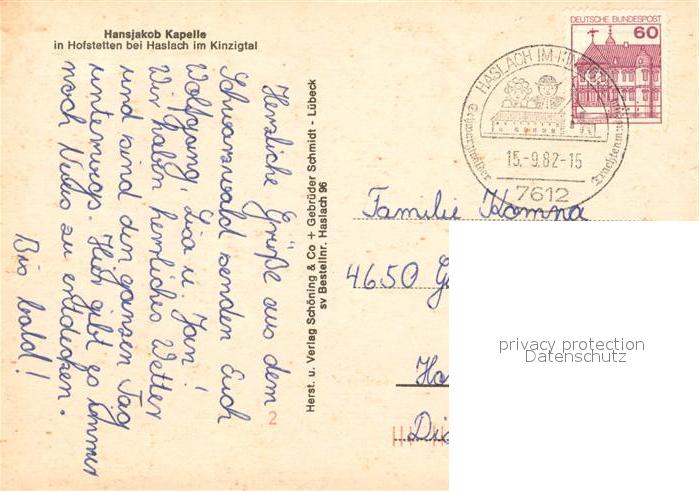 Hansjakob Kapelle
in Hofstetten bei Haslach im Kinzigtal
Herzliche Grüße aus dem
Schwarzwald senden Euch
Wolfgang, Lisa u. Jan!
Wir haben herrliches Wetter
und sind den ganzen Tag
unterwegs. Hier gibt es immer
noch Neues zu entdecken.
Bis bald!
Herst. u. Verlag Schöning & Co + Gebrüder Schmidt - Lübeck
sv Bestellnr. Haslach 96
2
DEUTSCHE BUNDESPOST
60
HASLACH IM
Trachtenmuseum
15.-9.82-15
7612
Familie
4650
privacy protection
Datenschutz